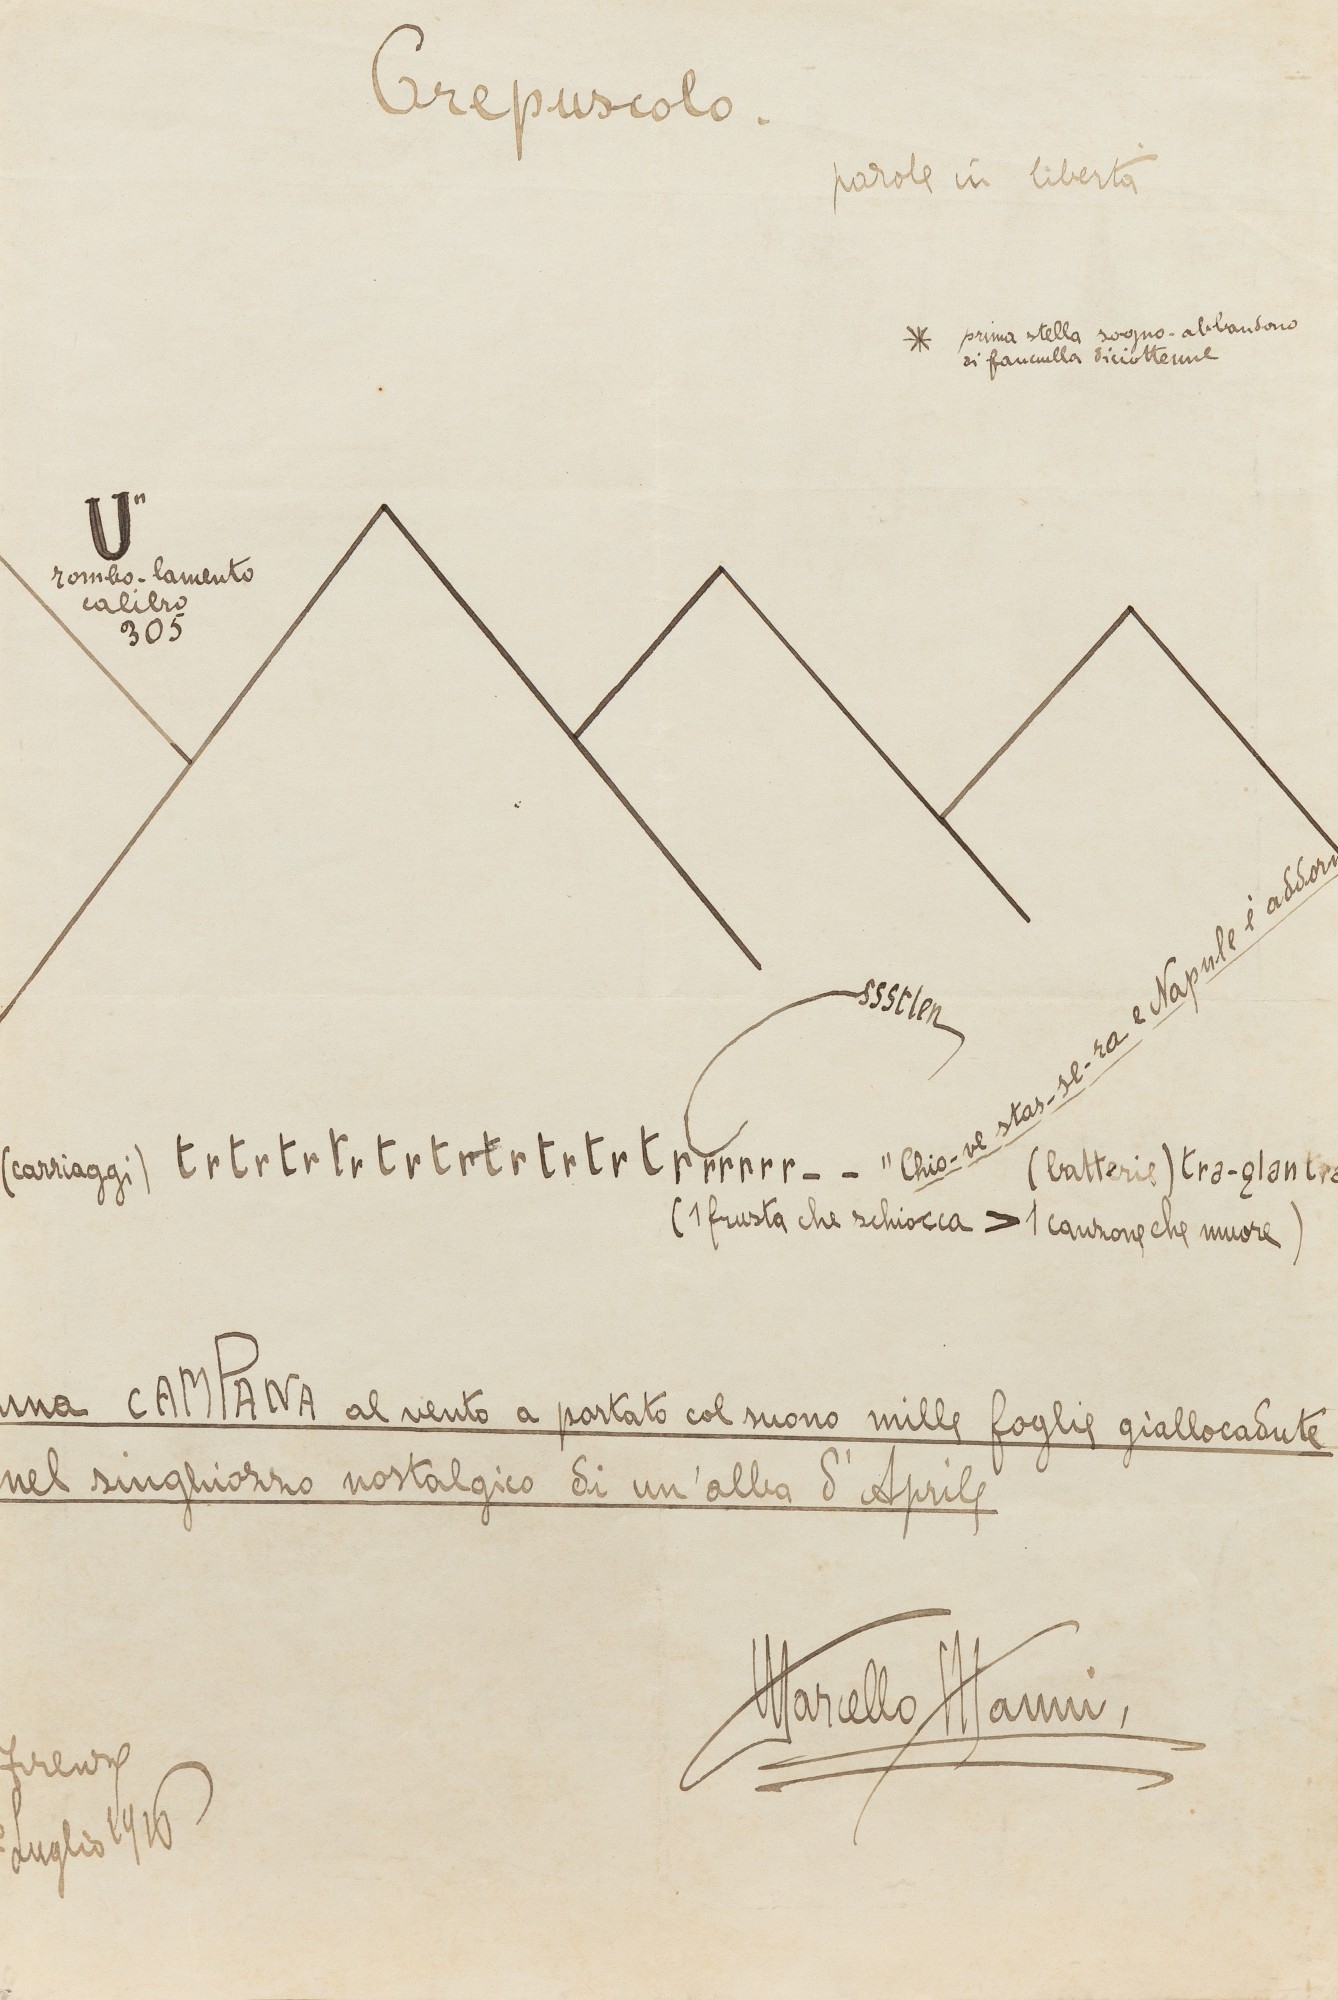 Crepuscolo.
parole in libertà
* prima stella sogno-abbandono
di fanciulla diciottenne
Un
rombo-lamento
calibro
305
ssstlen
(carriaggi) trtrtrtrtrtrtrtrtrtrrrrrr-- "Chio-ve stas-se-ra e Napule è addor
(batterie) tra-glan tra
(1 frusta che schiocca > 1 canzone che muore)
una CAMPANA al vento a portato col suono mille foglie giallocadute
nel singhiozzo nostalgico di un'alba d'Aprile
Marcello Manni,
Firenze
Luglio 1916